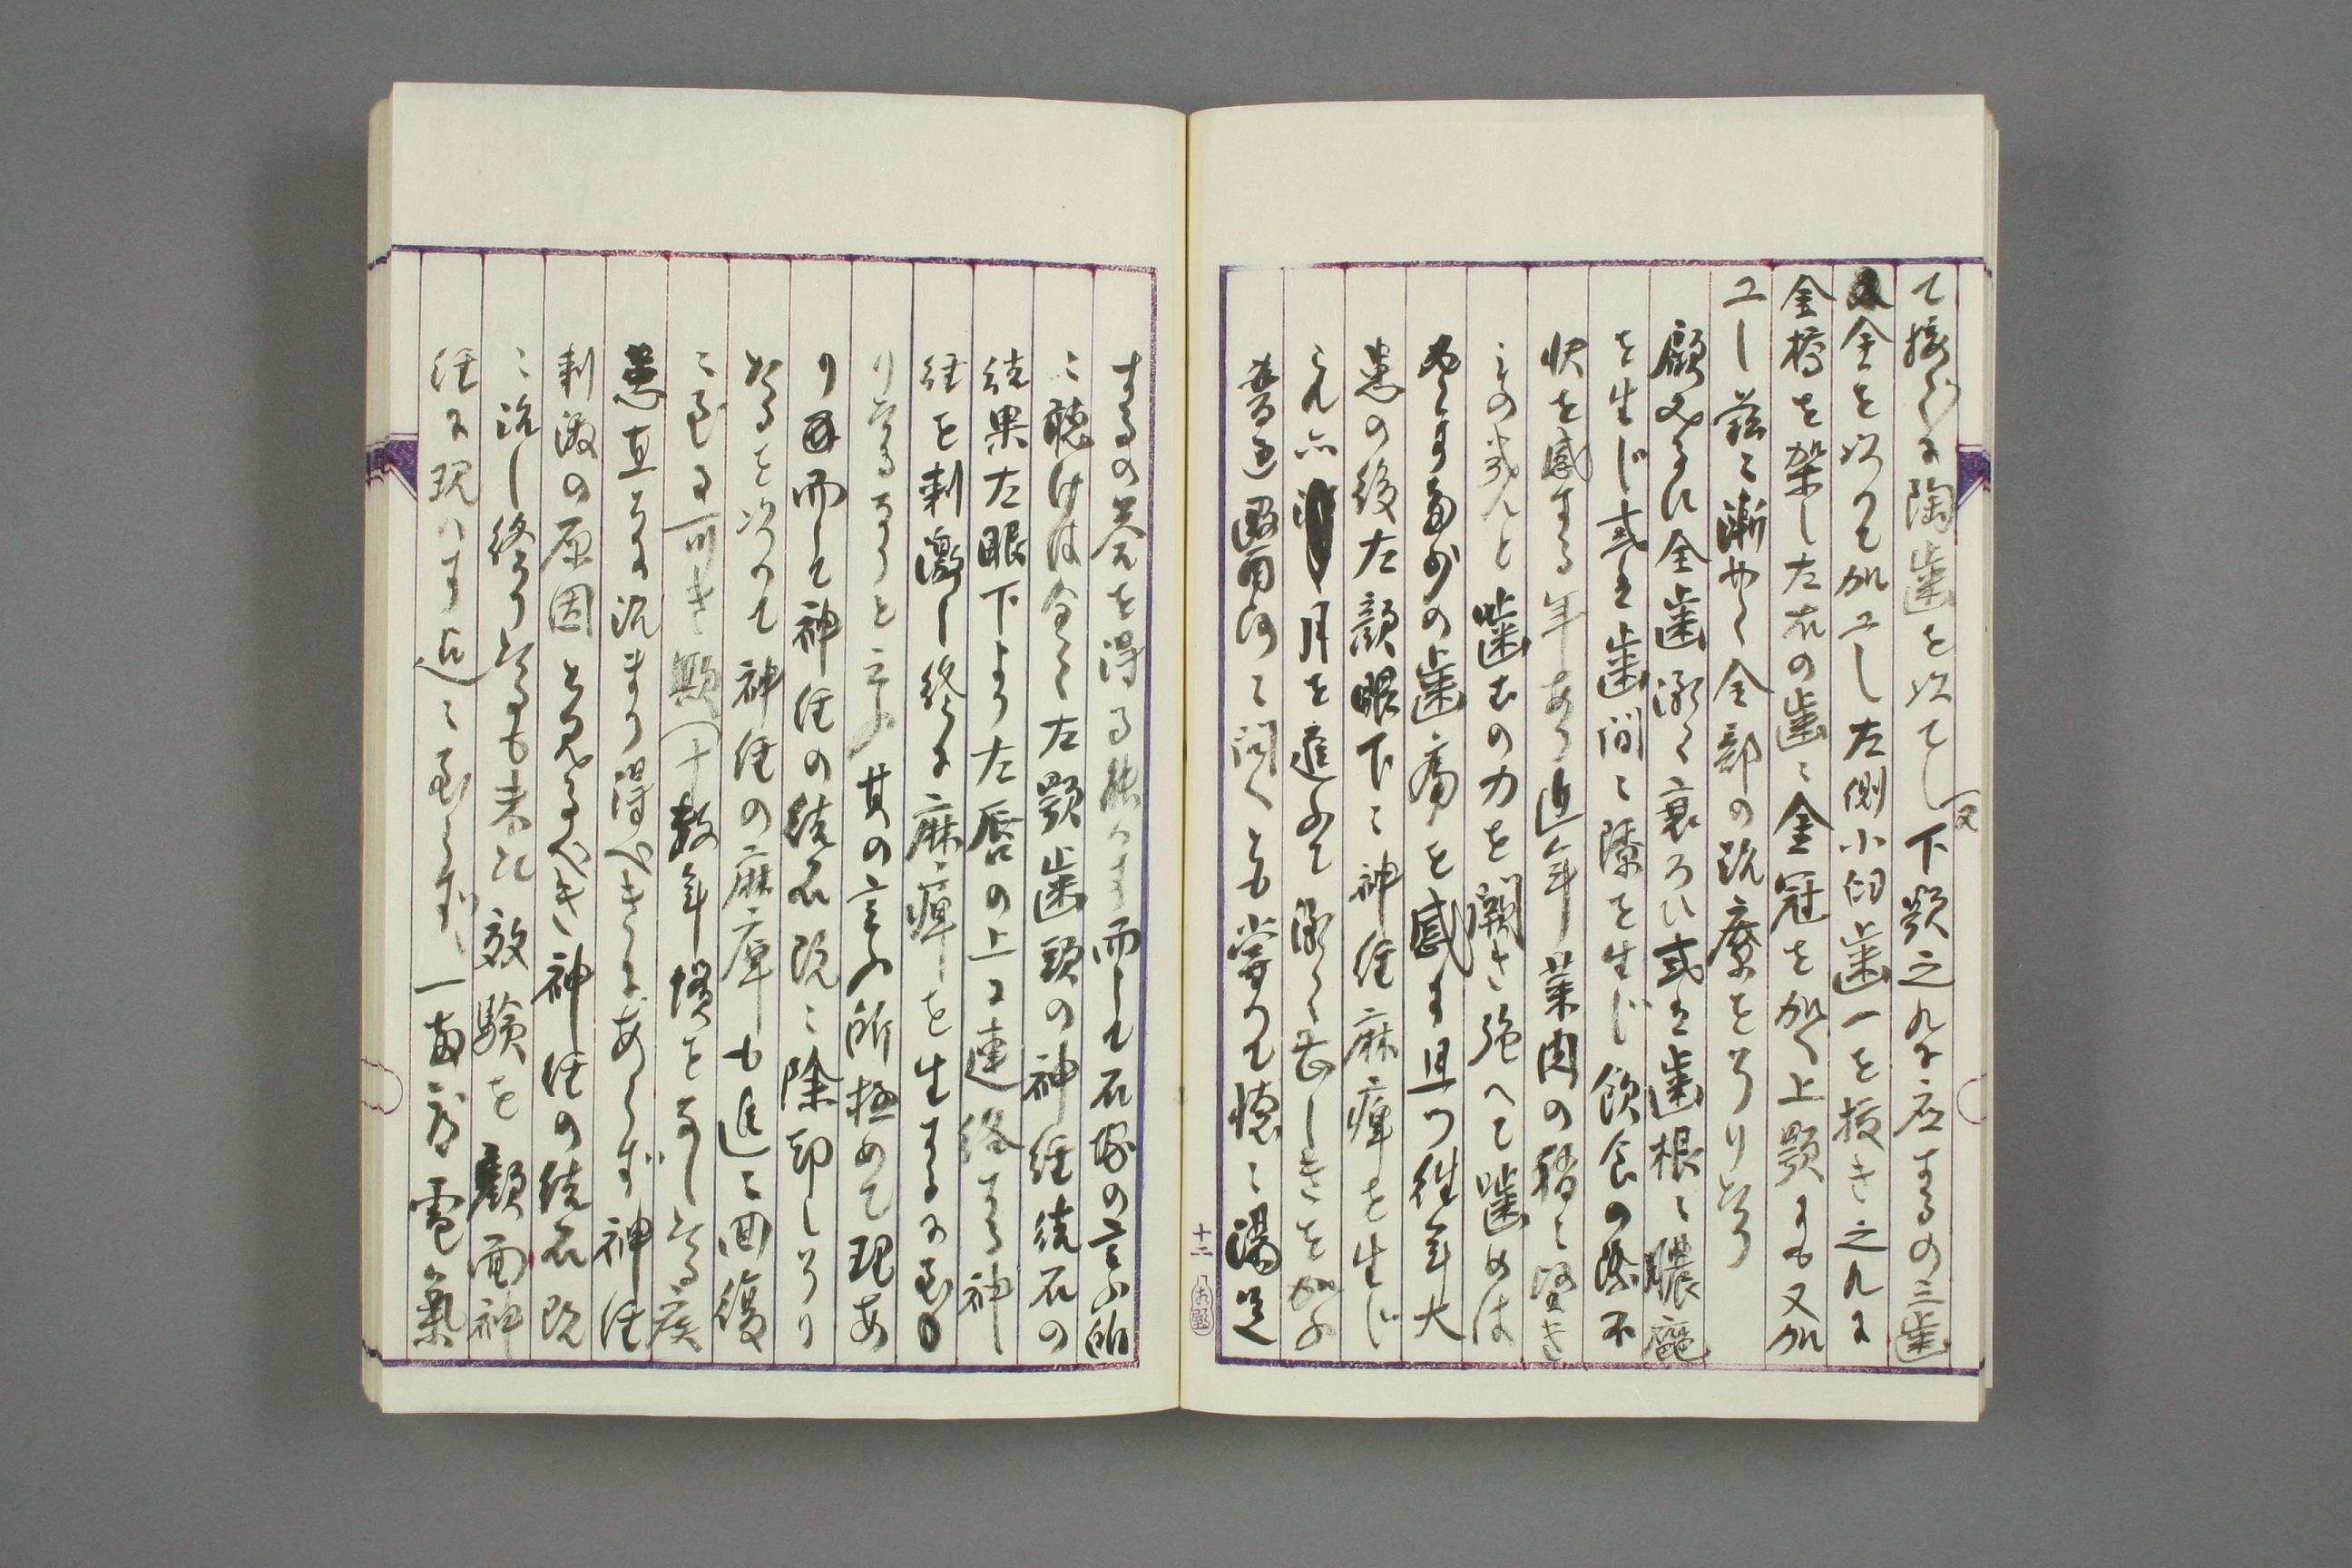 て接ぐに陶歯を以てし又下顎之れに応するの三歯
金を以つて加工し左側小臼歯一を抜き之れに
金橋を架し左右の歯に金冠を加へ上顎にも又加
工し茲に漸やく全部の治療を了り
顧みるに全歯漸く衰ろひ或は歯根に膿竈
を生じ或は歯間に隙を生じ飲食の際不
状を感する年あり近年葉肉の稍に堅き
もの噛むの力を闕き強へて噛めは
必らす多少の歯痛を感す且つ往年大
患の後左顔眼下に神経麻痺を生じ
月を進ふて漸く甚しきを加ふ
普通医師に問へとも曾つて懐に満足
するの答を得る能はす而して石塚の言ふ所
に聴けは全く左顎歯頚の神経結石の
結果左眼下より左唇の上に連絡する神
経を刺激し終に麻痺を生するに至
りたるなりと云ふ其の言ふ所極めて理あ
り而して神経の結石既に除却し了り
たるを以つて神経の麻痺も追に回復
に至る可き歟十数年慣をなしたる疾
患直ちに治まり得べきにあらず神経
刺激の原因と見るべき神経の結石既
に治し終りたるも未た效験を顔面神
経に現はす迄に至らず、一両 電氣
十二